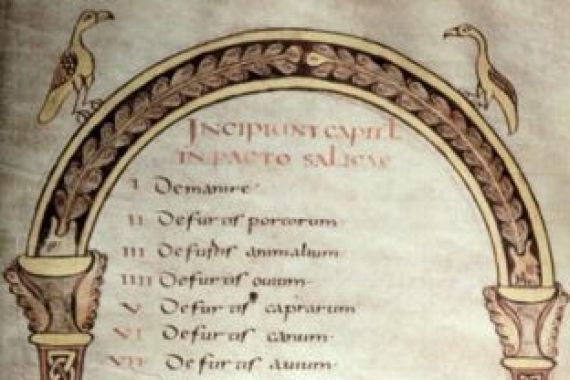 INCIPIUNT CAPITL
IN PACTO SALICAE
I De manire
II De furtis porcorum
III De furtis animalium
IIII De furtis ovium
V De furtis caprarum
VI De furtis canum
VII De furtis avium